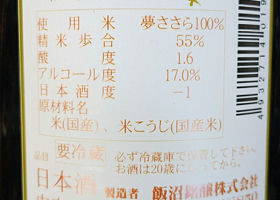 使用米 夢ささら100%
精米歩合 55%
酸度 1.6
アルコール度 17.0%
日本酒度 −1
原材料名
米(国産)、米こうじ(国産米)
品目 要冷蔵 必ず冷蔵庫で保管して下さい。
お酒は20歳になってから。
日本酒 製造者 飯沼銘醸株式会社